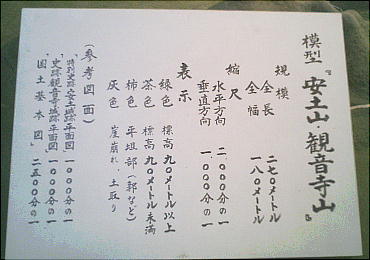 模型『安土山・観音寺山』
規模
全長 二七〇メートル
全幅 一八〇メートル
縮尺
水平方向 二〇〇〇分の一
垂直方向 一〇〇〇分の一
表示
緑色 標高九〇メートル以上
茶色 標高九〇メートル未満
柿色 平坦部(郭など)
灰色 崖崩れ、土取り
(参考図面)
『特別史跡安土城跡平面図』 一〇〇〇分の一
『史跡観音寺城跡平面図』 一〇〇〇分の一
『国土基本図』 二五〇〇分の一